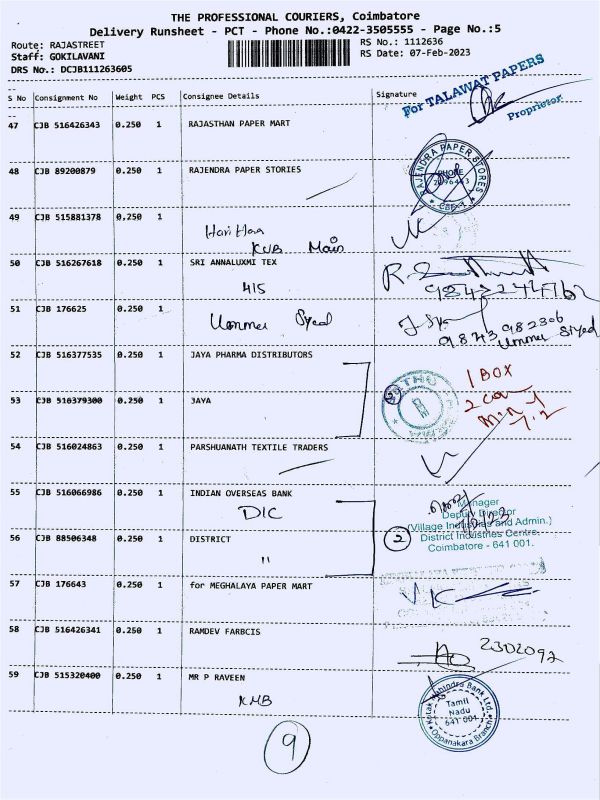 THE PROFESSIONAL COURIERS, Coimbatore
Delivery Runsheet - PCT - Phone No.:0422-3505555 - Page No.:5
Route: RAJASTREET
RS No.: 1112636
Staff: GOKILAVANI
RS Date: 07-Feb-2023
DRS No.: DCJB111263605
For TALAWAT PAPERS
Proprietor
S No Consignment No Weight PCS Consignee Details Signature
47 CJB 516426343 0.250 1 RAJASTHAN PAPER MART
48 CJB 89200879 0.250 1 RAJENDRA PAPER STORIES
RAJENDRA PAPER STORES
PHONE
CBE-1
49 CJB 515881378 0.250 1
KVB Main
50 CJB 516267618 0.250 1 SRI ANNALUXMI TEX
415
51 CJB 176625 0.250 1 Ummer Syed
9843982306
Ummer Siyed
52 CJB 516377535 0.250 1 JAYA PHARMA DISTRIBUTORS
1 BOX
2 cov
53 CJB 516379300 0.250 1 JAYA
7.2
54 CJB 516024863 0.250 1 PARSHUANATH TEXTILE TRADERS
55 CJB 516066986 0.250 1 INDIAN OVERSEAS BANK
DIC
Manager
Deputy Director
(Village Industries and Admin.)
District Industries Centre,
Coimbatore - 641 001.
2
56 CJB 88506348 0.250 1 DISTRICT
"
57 CJB 176643 0.250 1 for MEGHALAYA PAPER MART
58 CJB 516426341 0.250 1 RAMDEV FARBCIS
2302092
59 CJB 515320400 0.250 1 MR P RAVEEN
KMB
Kotak Mahindra Bank Ltd.
Tamil
Nadu
641 001
Oppanakara Branch
9